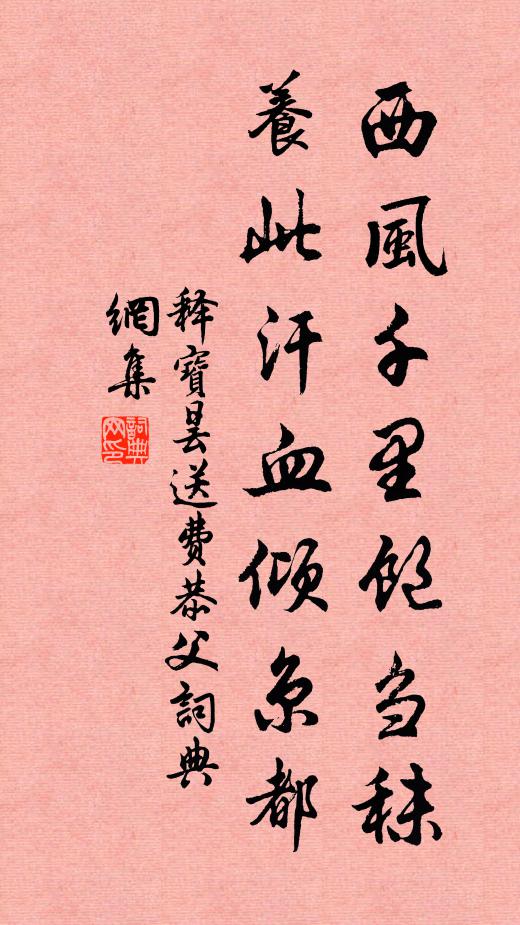 西風千里飽刍秣
養此汗血傾京都
释寶曇送費恭父詞典
網集
詞典
网印